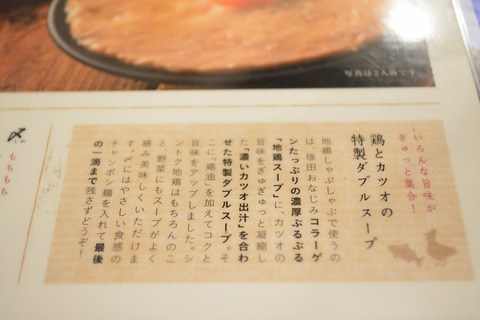 写真は2人前です。
いろんな旨味が
ぎゅっと集合。
鶏とカツオの
特製ダブルスープ
地鶏しゃぶしゃぶで使うの
は、塚田おなじみコラーゲ
ンたっぷりの濃厚ぷるぷる
「地鶏スープ」に、カツオの
旨味をぎゅぎゅっと凝縮し
た「濃いカツオ出汁」を合わ
せた特製ダブルスープ。そ
こに「鶏油」を加えてコクと
旨味をアップしました。シ
ントク地鶏はもちろんのこ
と、野菜にもスープがよく
絡み美味しくいただけま
す。〆にはやさしい食感の
チャンポン麺を入れて最後
の一滴まで残さずどうぞ！
〆
しめ
もちもち